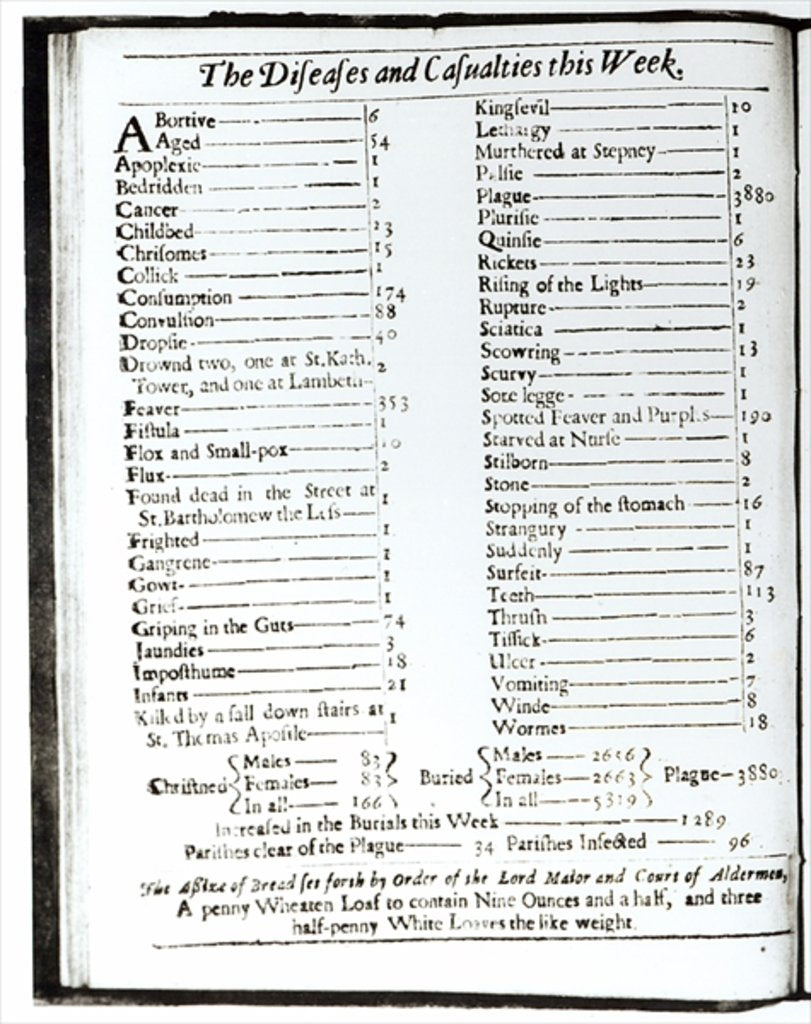 The Diſeaſes and Caſualties this Week.
ABortive 6
Aged 54
Apoplexie 1
Bedridden 1
Cancer 2
Childbed 23
Chriſomes 15
Collick 1
Conſumption 174
Convulſion 88
Dropſie 40
Drownd two, one at St.Kath.
Tower, and one at Lambeth 2
Feaver 353
Fiſtula 1
Flox and Small-pox 10
Flux 2
Found dead in the Street at
St.Bartholomew the Leſs 1
Frighted 1
Gangrene 1
Gowt 1
Grief 1
Griping in the Guts 74
Jaundies 3
Impoſthume 18
Infants 21
Killed by a fall down ſtairs at
St. Thomas Apoſtle 1
Kingſevil 10
Lethargy 1
Murthered at Stepney 1
Palſie 2
Plague 3880
Pluriſie 1
Quinſie 6
Rickets 23
Riſing of the Lights 19
Rupture 2
Sciatica 1
Scowring 13
Scurvy 1
Sore legge 1
Spotted Feaver and Purples 190
Starved at Nurſe 1
Stilborn 8
Stone 2
Stopping of the ſtomach 16
Strangury 1
Suddenly 1
Surfeit 87
Teeth 113
Thruſh 3
Tiſſick 6
Ulcer 2
Vomiting 7
Winde 8
Wormes 18
Chriſtned
Males 83
Females 83
In all 166
Buried
Males 2656
Females 2663
In all 5319
Plague 3880
Increaſed in the Burials this Week 1289
Pariſhes clear of the Plague 34 Pariſhes Infected 96
The Aſsize of Bread ſet forth by Order of the Lord Maior and Court of Aldermen,
A penny Wheaten Loaf to contain Nine Ounces and a half, and three
half-penny White Loaves the like weight.